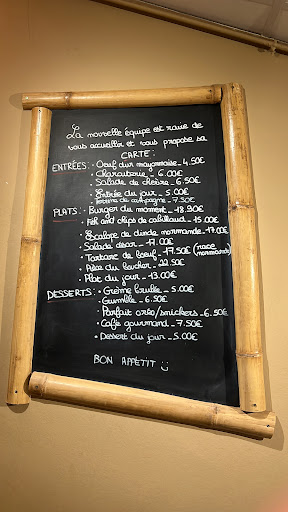 La nouvelle équipe est ravie de
vous accueillir et vous propose sa
CARTE :
ENTRÉES : • Oeuf dur mayonnaise - 4.50€
• Charcuterie - 6.00€
• Salade de chèvre - 6.50€
• Entrée du jour - 5.00€
• Terrine de campagne - 7.50€
PLATS : • Burger du moment - 18.90€
• Fish and chips de cabillaud - 15.00€
• Escalope de dinde normande - 17.00€
• Salade césar - 17.00€
• Tartare de boeuf - 17.50€ (race normande)
• Pièce du boucher - 22.50€
• Plat du jour - 13.00€
DESSERTS : • Crème brulée - 5.00€
• Crumble - 6.50€
• Parfait oréo/snickers - 6.50€
• Café gourmand - 7.50€
• Dessert du jour - 5.00€
BON APPÉTIT :)